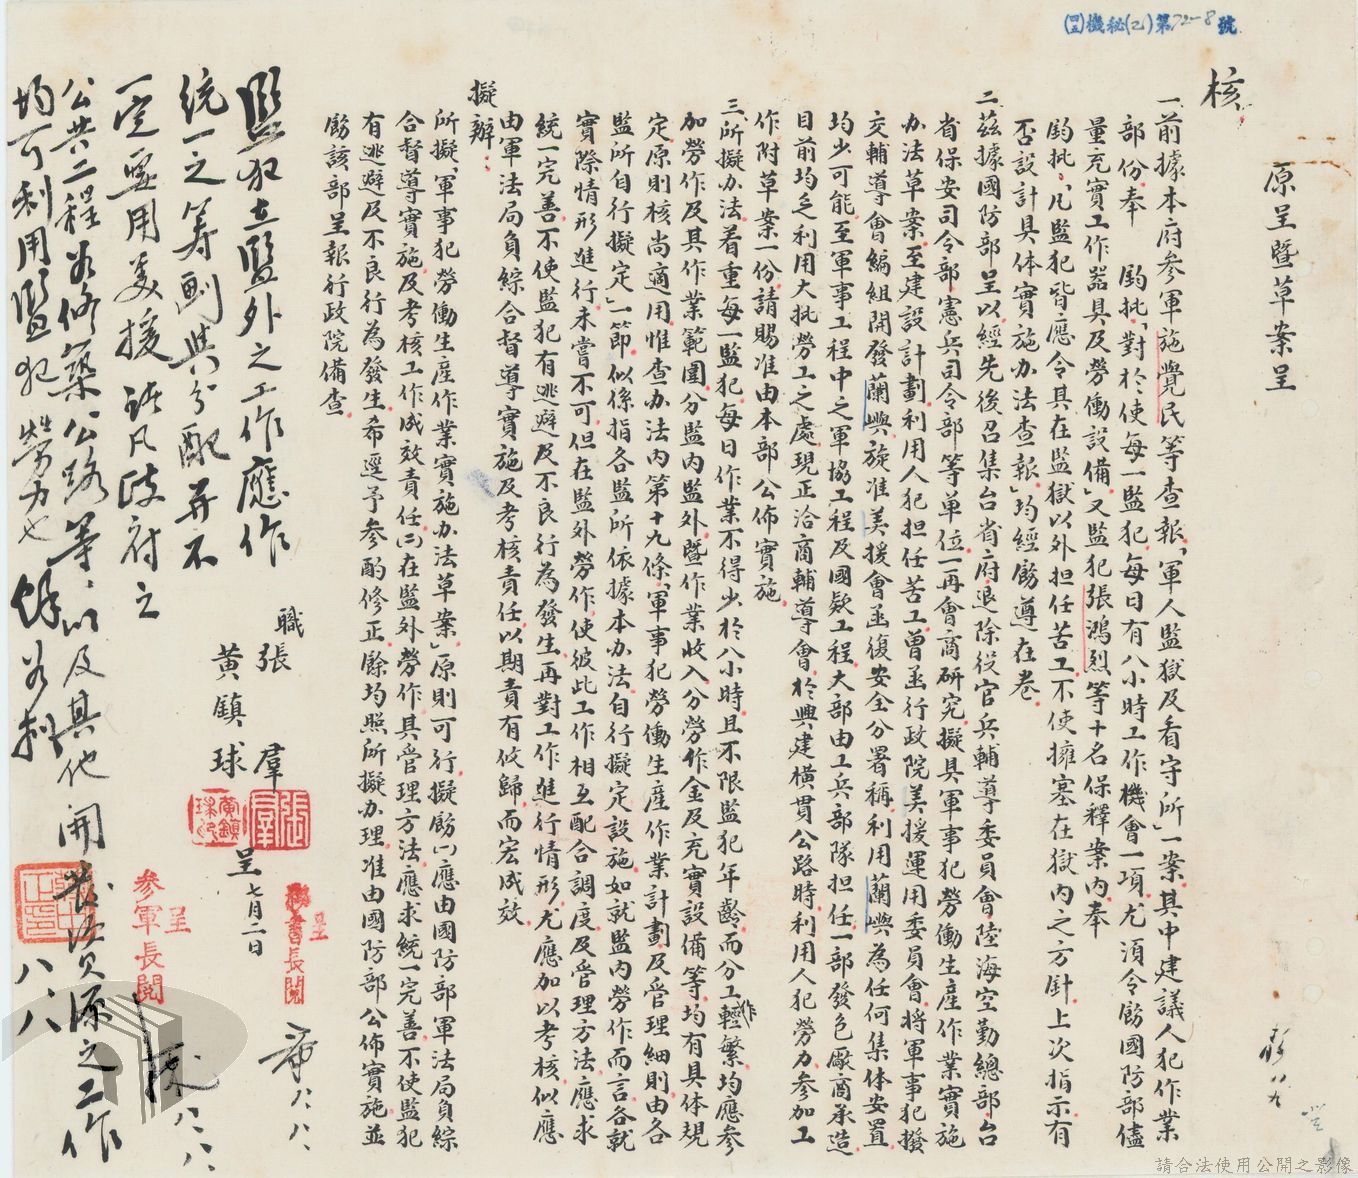 (四五)機秘(乙)第72-8號
原呈暨草案呈
核
一、前據本府參軍施覺民等查報「軍人監獄及看守所」一案其中建議人犯作業
部份奉　鈞批「對於使每一監犯每日有八小時工作機會一項尤須令飭國防部儘
量充實工作器具及勞働設備」又監犯張鴻烈等十名保釋案內奉
鈞批、「凡監犯皆應令其在監獄以外担任苦工不使擁塞在獄內之方針上次指示有
否設計具体實施办法查報」均經飭遵在卷
二、茲據國防部呈以經先後召集台省府退除役官兵輔導委員會陸海空勤總部台
省保安司令部憲兵司令部等單位一再會商研究擬具軍事犯勞働生產作業實施
办法草案至建設計劃利用人犯担任苦工曾函行政院美援運用委員會將軍事犯撥
交輔導會編組開發蘭嶼旋准美援會函復安全分署稱利用蘭嶼為任何集体安置
均少可能至軍事工程中之軍協工程及國款工程大部由工兵部隊担任一部發包廠商承造
目前均乏利用大批勞工之處現正洽商輔導會於興建橫貫公路時利用人犯勞力參加工
作附草案一份請賜准由本部公佈實施
三、所擬办法着重每一監犯每日作業不得少於八小時且不限監犯年齡而分工作輕繁均應參
加勞作及其作業範圍分監內監外暨作業收入分勞作金及充實設備等均有具体規
定原則核尚適用惟查办法內第十九條「軍事犯勞働生產作業計劃及管理細則由各
監所自行擬定」一節似係指各監所依據本办法自行擬定設施如就監內勞作而言各就
實際情形進行未嘗不可但在監外勞作使彼此工作相互配合調度及管理方法應求
統一完善不使監犯有逃避及不良行為發生再對工作進行情形尤應加以考核似應
由軍法局負綜合督導實施及考核責任以期責有攸歸而宏成效
擬辦：
所擬「軍事犯勞働生產作業實施办法草案」原則可行擬飭㈠應由國防部軍法局負綜
合督導實施及考核工作成效責任㈡在監外勞作其管理方法應求統一完善不使監犯
有逃避及不良行為發生希逕予參酌修正餘均照所擬办理准由國防部公佈實施並
飭該部呈報行政院備查
職張　羣
黃鎮球　呈　七月二日
張羣
黃鎮球印
呈
秘書長閱
八、八、
呈
參軍長閱
八、八
監犯在監外之工作應作
統一之筹劃與分配并不
一定要用美援諸凡政府之
公共工程如修築公路等、以及其他開發資源之工作
均可利用監犯勞力也餘如擬
八、八
請合法使用公開之影像